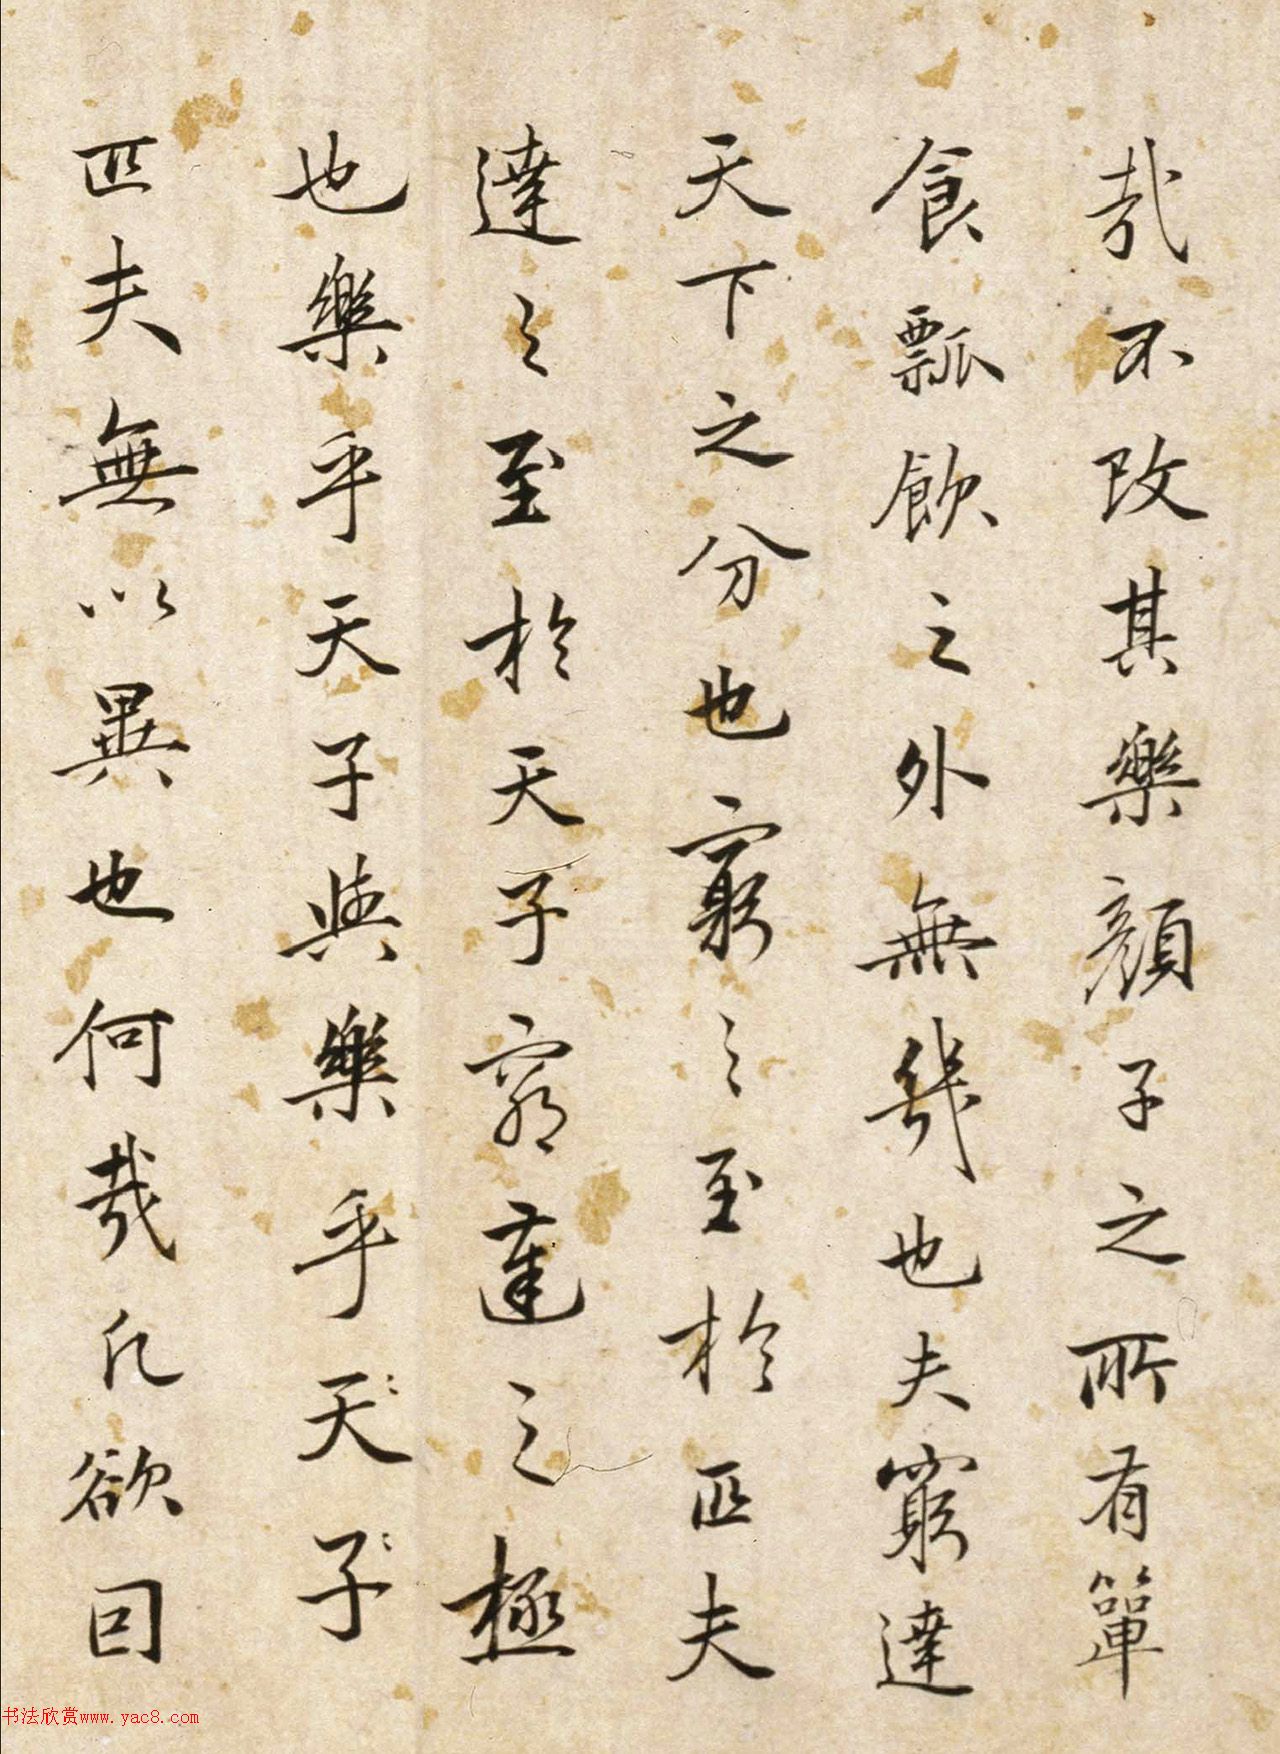 哉不改其樂顔子之所有簞
食瓢飲之外無幾也夫窮達
天下之分也窮之至於匹夫
達之至於天子窮達之極
也樂乎天子與樂乎天子
匹夫無以異也何哉凡欲囙
书法欣赏www.yac8.com